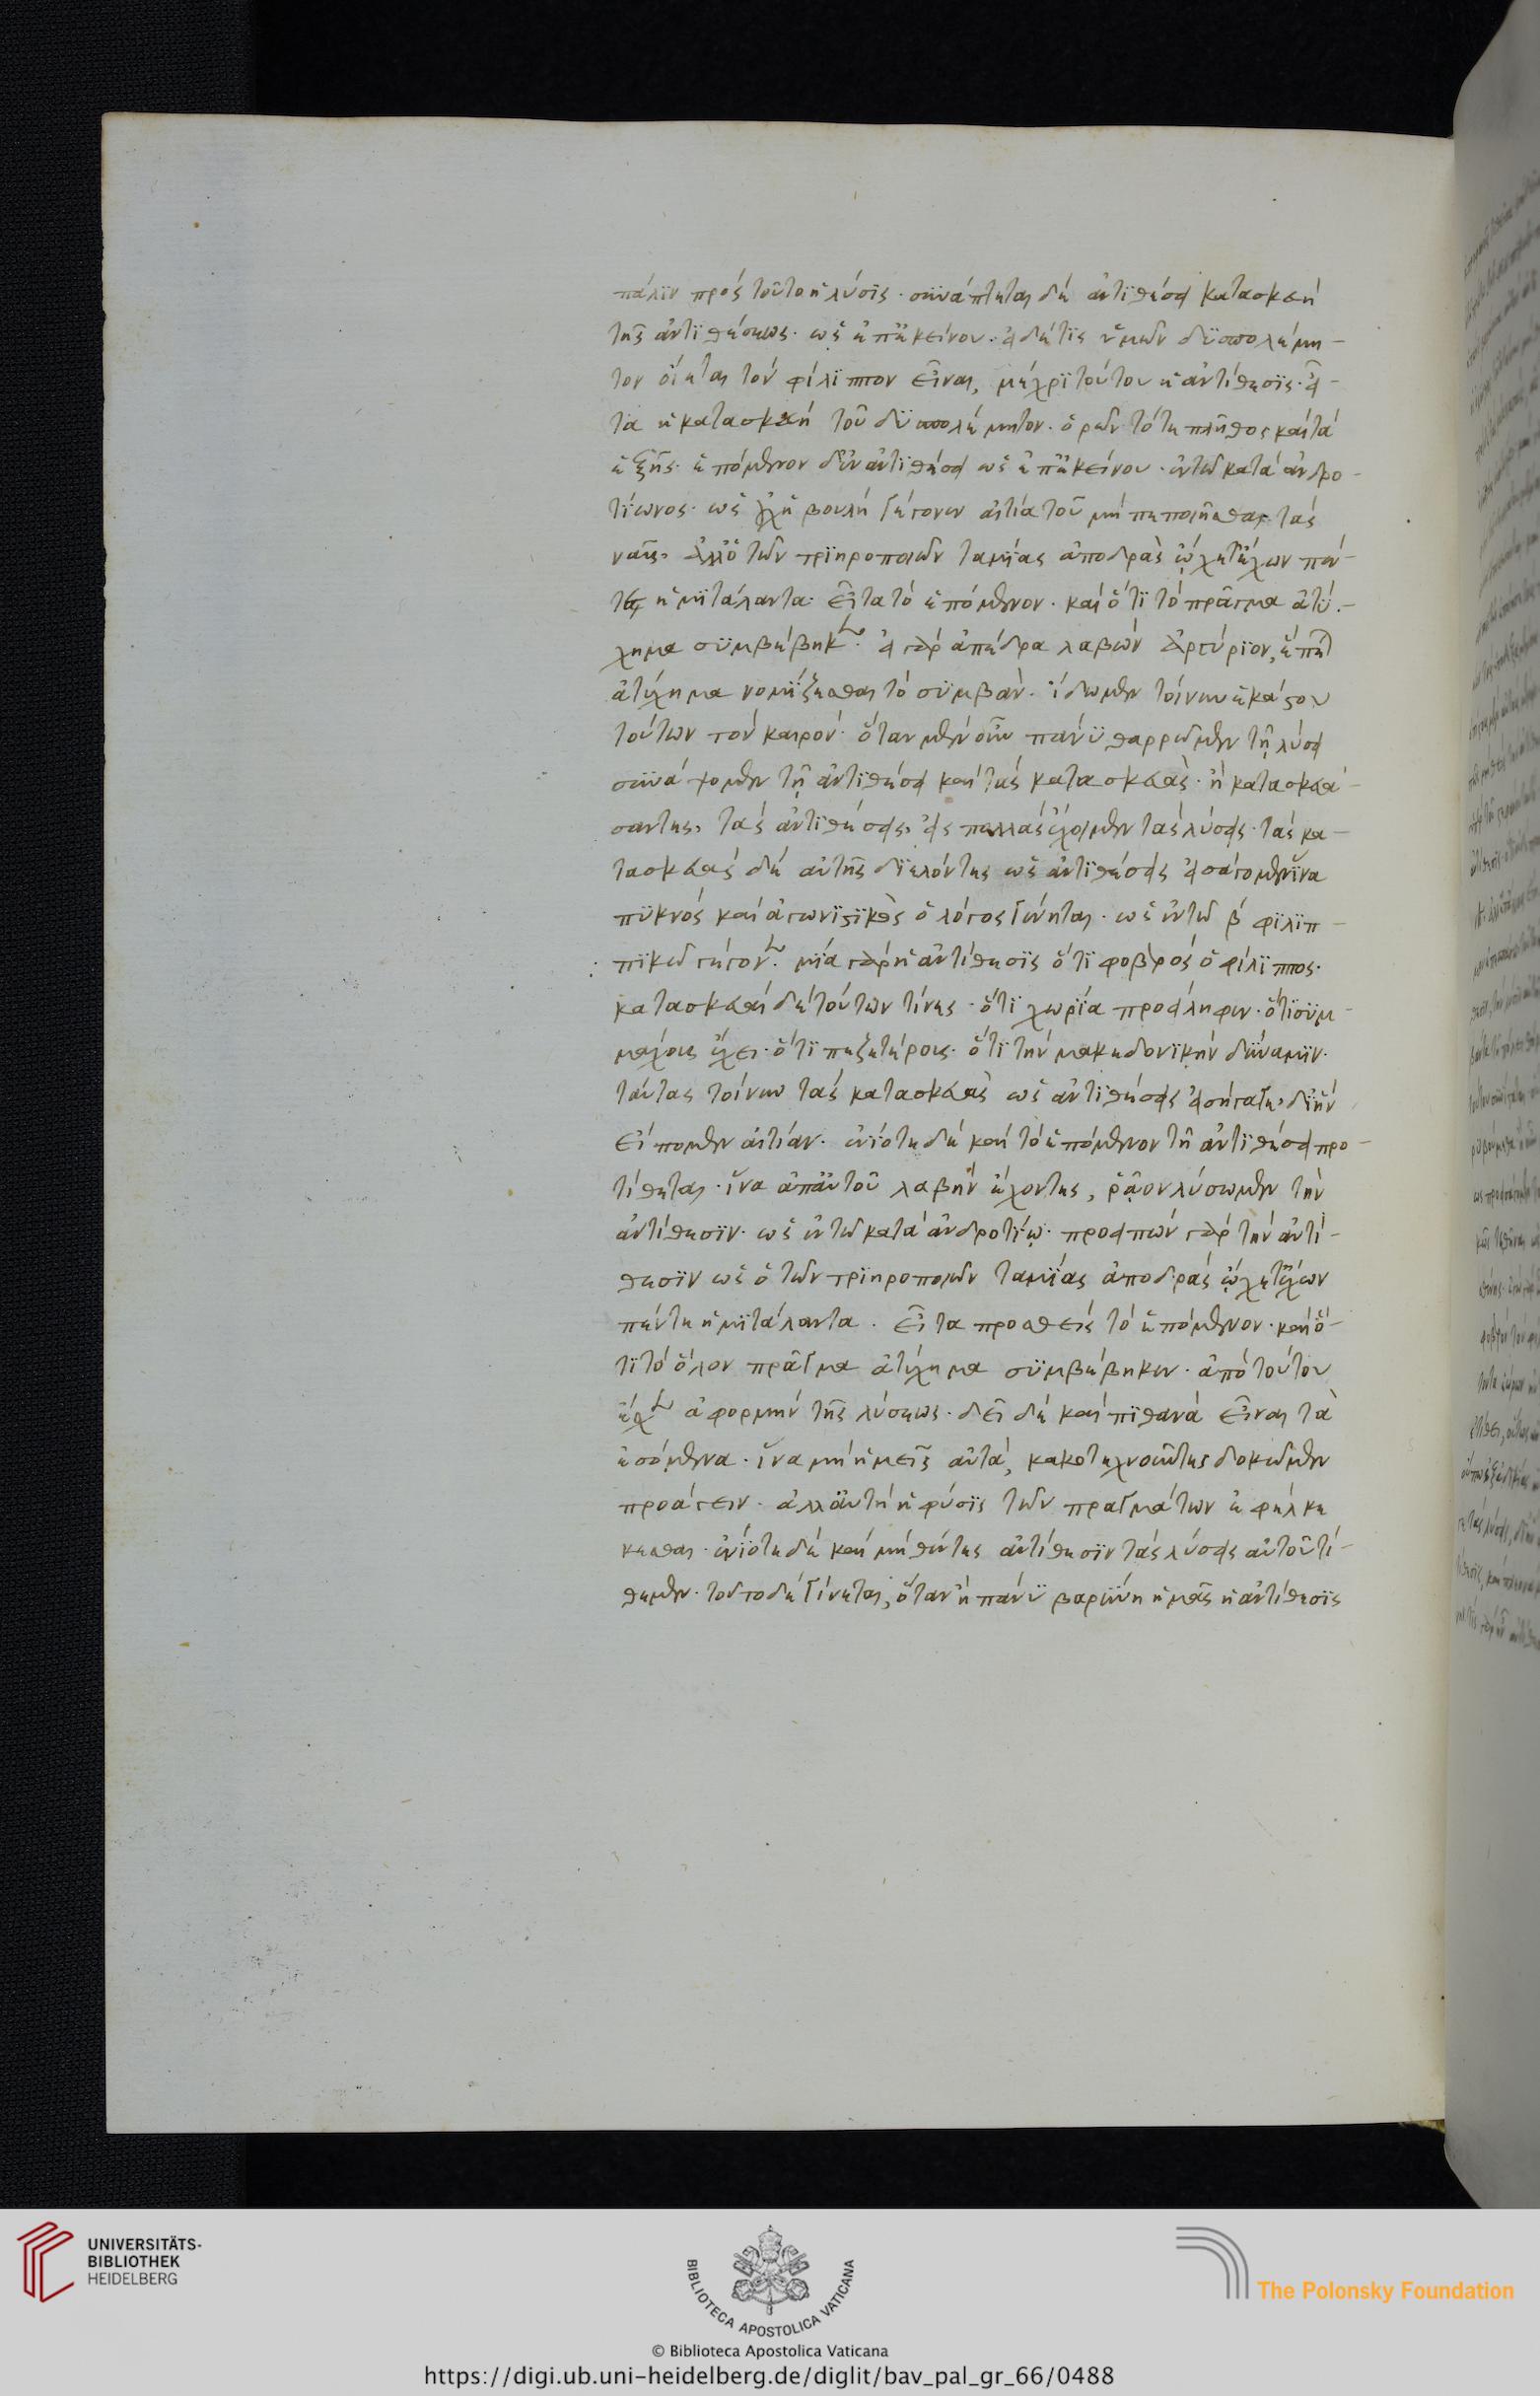 πάλϊν πρὸς τοῦτο ἡ λύσϊς· συνάπτεται δὲ ἀντϊθέσει κατασκευὴ
τῆς ἀντϊθέσεως· ὡς ἐπ' ἐκείνου· εἰ δέ τϊς ὑμῶν δυσπολέμη-
τον οἴεται τὸν φίλϊππον εἶναι, μέχρϊ τούτου ἡ ἀντίθεσϊς· εἶ-
τα ἡ κατασκευὴ τοῦ δυσπολέμητον· ὁρῶν τό τε πλῆθος καὶ τὰ
ἑξῆς· ἑπόμενον δὲ ἀντϊθέσει ὡς ἐπ' ἐκείνου· ἐν τῶ κατὰ ἀνδρο-
τίωνος· ὡς οὐχ ἡ βουλὴ γέγονεν αἰτία τοῦ μὴ πεποιῆσθαι τὰς
ναῦς, ἀλλ' ὁ τῶν τρϊηροποιῶν ταμίας ἀποδρὰς ᾤχετ' ἔχων πέν-
τε ἡμϊτάλαντα· εἶτα τὸ ἑπόμενον· καὶ ὅτϊ τὸ πρᾶγμα ἀτύ-
χημα συμβέβηκεν· εἰ γὰρ ἀπέδρα λαβὼν ἀργύρϊον,
ἀτύχημα νομίζεσθαι τὸ συμβάν· ἴδωμεν τοίνυν ἑκάστου
τούτων τὸν καιρόν· ὅταν μὲν οὖν πάνϋ θαρρῶμεν τῆ λύσει
συνάψομεν τῆ ἀντϊθέσει καὶ τὰς κατασκευάς· ἢ κατασκευά-
σαντες, τὰς ἀντϊθέσεις, εἰς πολλὰς ἕξομεν τὰς λύσεις· τὰς κα-
τασκευὰς δὲ αὐτῆς δϊελόντες ὡς ἀντϊθέσεις εἰσάγομεν ἵνα
πϋκνὸς καὶ ἀγωνϊστϊκὸς ὁ λόγος γένηται· ὡς ἐν τῶ β φϊλϊπ-
πϊκῶ γέγονεν· μία γὰρ ἡ ἀντίθεσϊς ὅτϊ φοβερὸς ὁ φίλϊππος·
κατασκευαὶ δὲ τούτων τίνες· ὅτϊ χωρία προείληφεν· ὅτϊ συμ-
μάχους ἔχει· ὅτϊ πεζεταίρους· ὅτϊ τὴν μακεδονϊκὴν δύναμϊν·
ταύτας τοίνυν τὰς κατασκευὰς ὡς ἀντϊθέσεις εἰσήγαγε, δϊ' ἣν
εἴπομεν αἰτίαν· ἐνίοτε δὲ καὶ τὸ ἑπόμενον τῆ ἀντϊθέσει προ-
τίθεται· ἵνα ἀπ' αὐτοῦ λαβὴν ἔχοντες, ῥᾷον λύσωμεν τὴν
ἀντίθεσϊν· ὡς ἐν τῶ κατὰ ἀνδροτίω· προειπὼν γὰρ τὴν ἀντί-
θεσϊν ὡς ὁ τῶν τρϊηροποιῶν ταμίας ἀποδρὰς ᾤχετ' ἔχων
πέντε ἡμϊτάλαντα· εἶτα προσθεὶς τὸ ἑπόμενον· καὶ ὅ-
τϊ τὸ ὅλον πρᾶγμα ἀτύχημα συμβέβηκεν· ἀπὸ τούτου
ἔσχεν ἀφορμὴν τῆς λύσεως· δεῖ δὲ καὶ πϊθανὰ εἶναι τὰ
ἑπόμενα· ἵνα μὴ ἡμεῖς αὐτά, κακοτεχνοῦντες δοκῶμεν
προάγειν· ἀλλ' αὐτὴ ἡ φύσϊς τῶν πραγμάτων ἐφέλκε
κεσθαι· ἐνίοτε δὲ καὶ μὴ θέντες ἀντίθεσϊν τὰς λύσεις αὐτοῦ τί-
θεμεν· τοῦτο δὲ γίνεται, ὅταν ἢ πάνϋ βαρύνη ἡμᾶς ἡ ἀντίθεσϊς
UNIVERSITÄTS-
BIBLIOTHEK
HEIDELBERG
BIBLIOTECA APOSTOLICA VATICANA
The Polonsky Foundation
© Biblioteca Apostolica Vaticana
https://digi.ub.uni-heidelberg.de/diglit/bav_pal_gr_66/0488